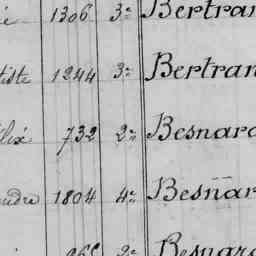 1306 3e Bertran
tiste 1244 3e Bertran
lix 732 2e Besnard
andre 1804 4e Besnar
2e Besnard